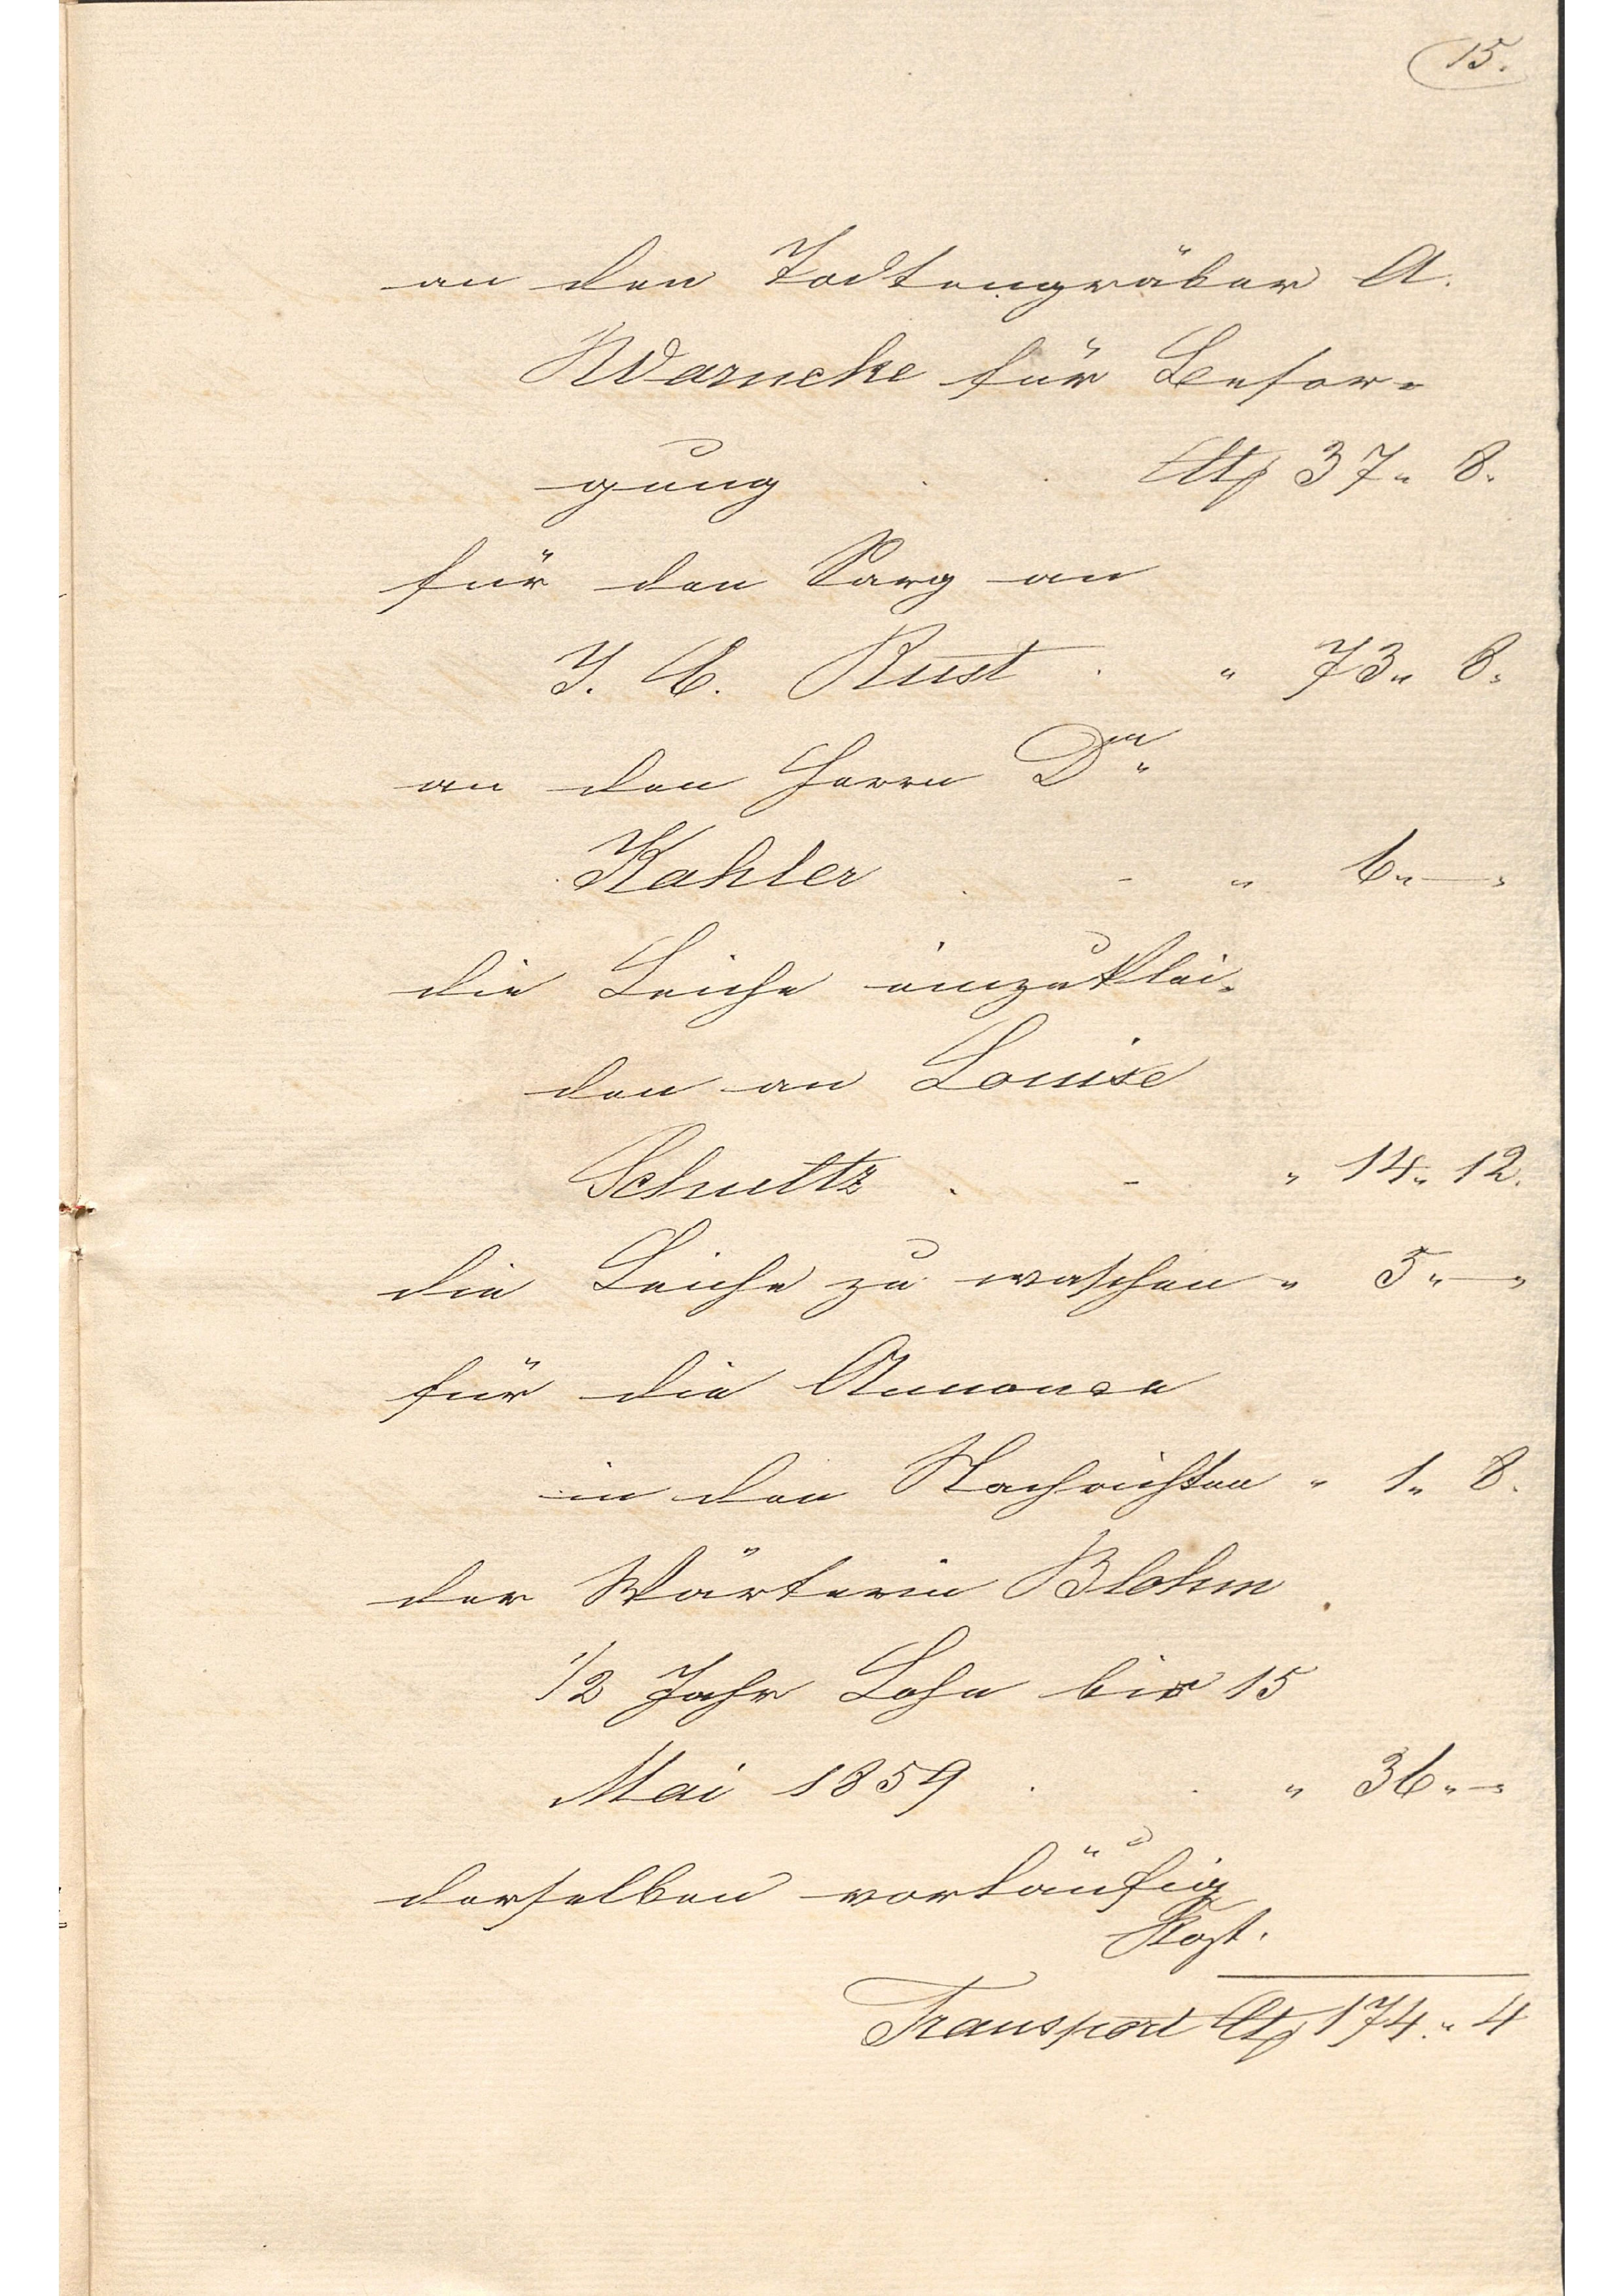 15.
an den Todtengräber A.
Warncke für Besor-
gung . . Ct# 37 " 8.
für den Sarg an
J. C. Rust . " 73 " 8.
an den Herrn Dr.
Kahler . - " 6 " —
die Leiche einzuklei-
den an Louise
Schultz . - " 14 " 12.
die Leiche zu waschen " 5 " —
für die Annonce
in den Nachrichten " 1 " 8.
der Wärterin Blohm
1/2 Jahr Lohn bis 15
Mai 1859 . . " 36 " —
derselben vorläufig
Kost.
Transport Ct# 174. " 4